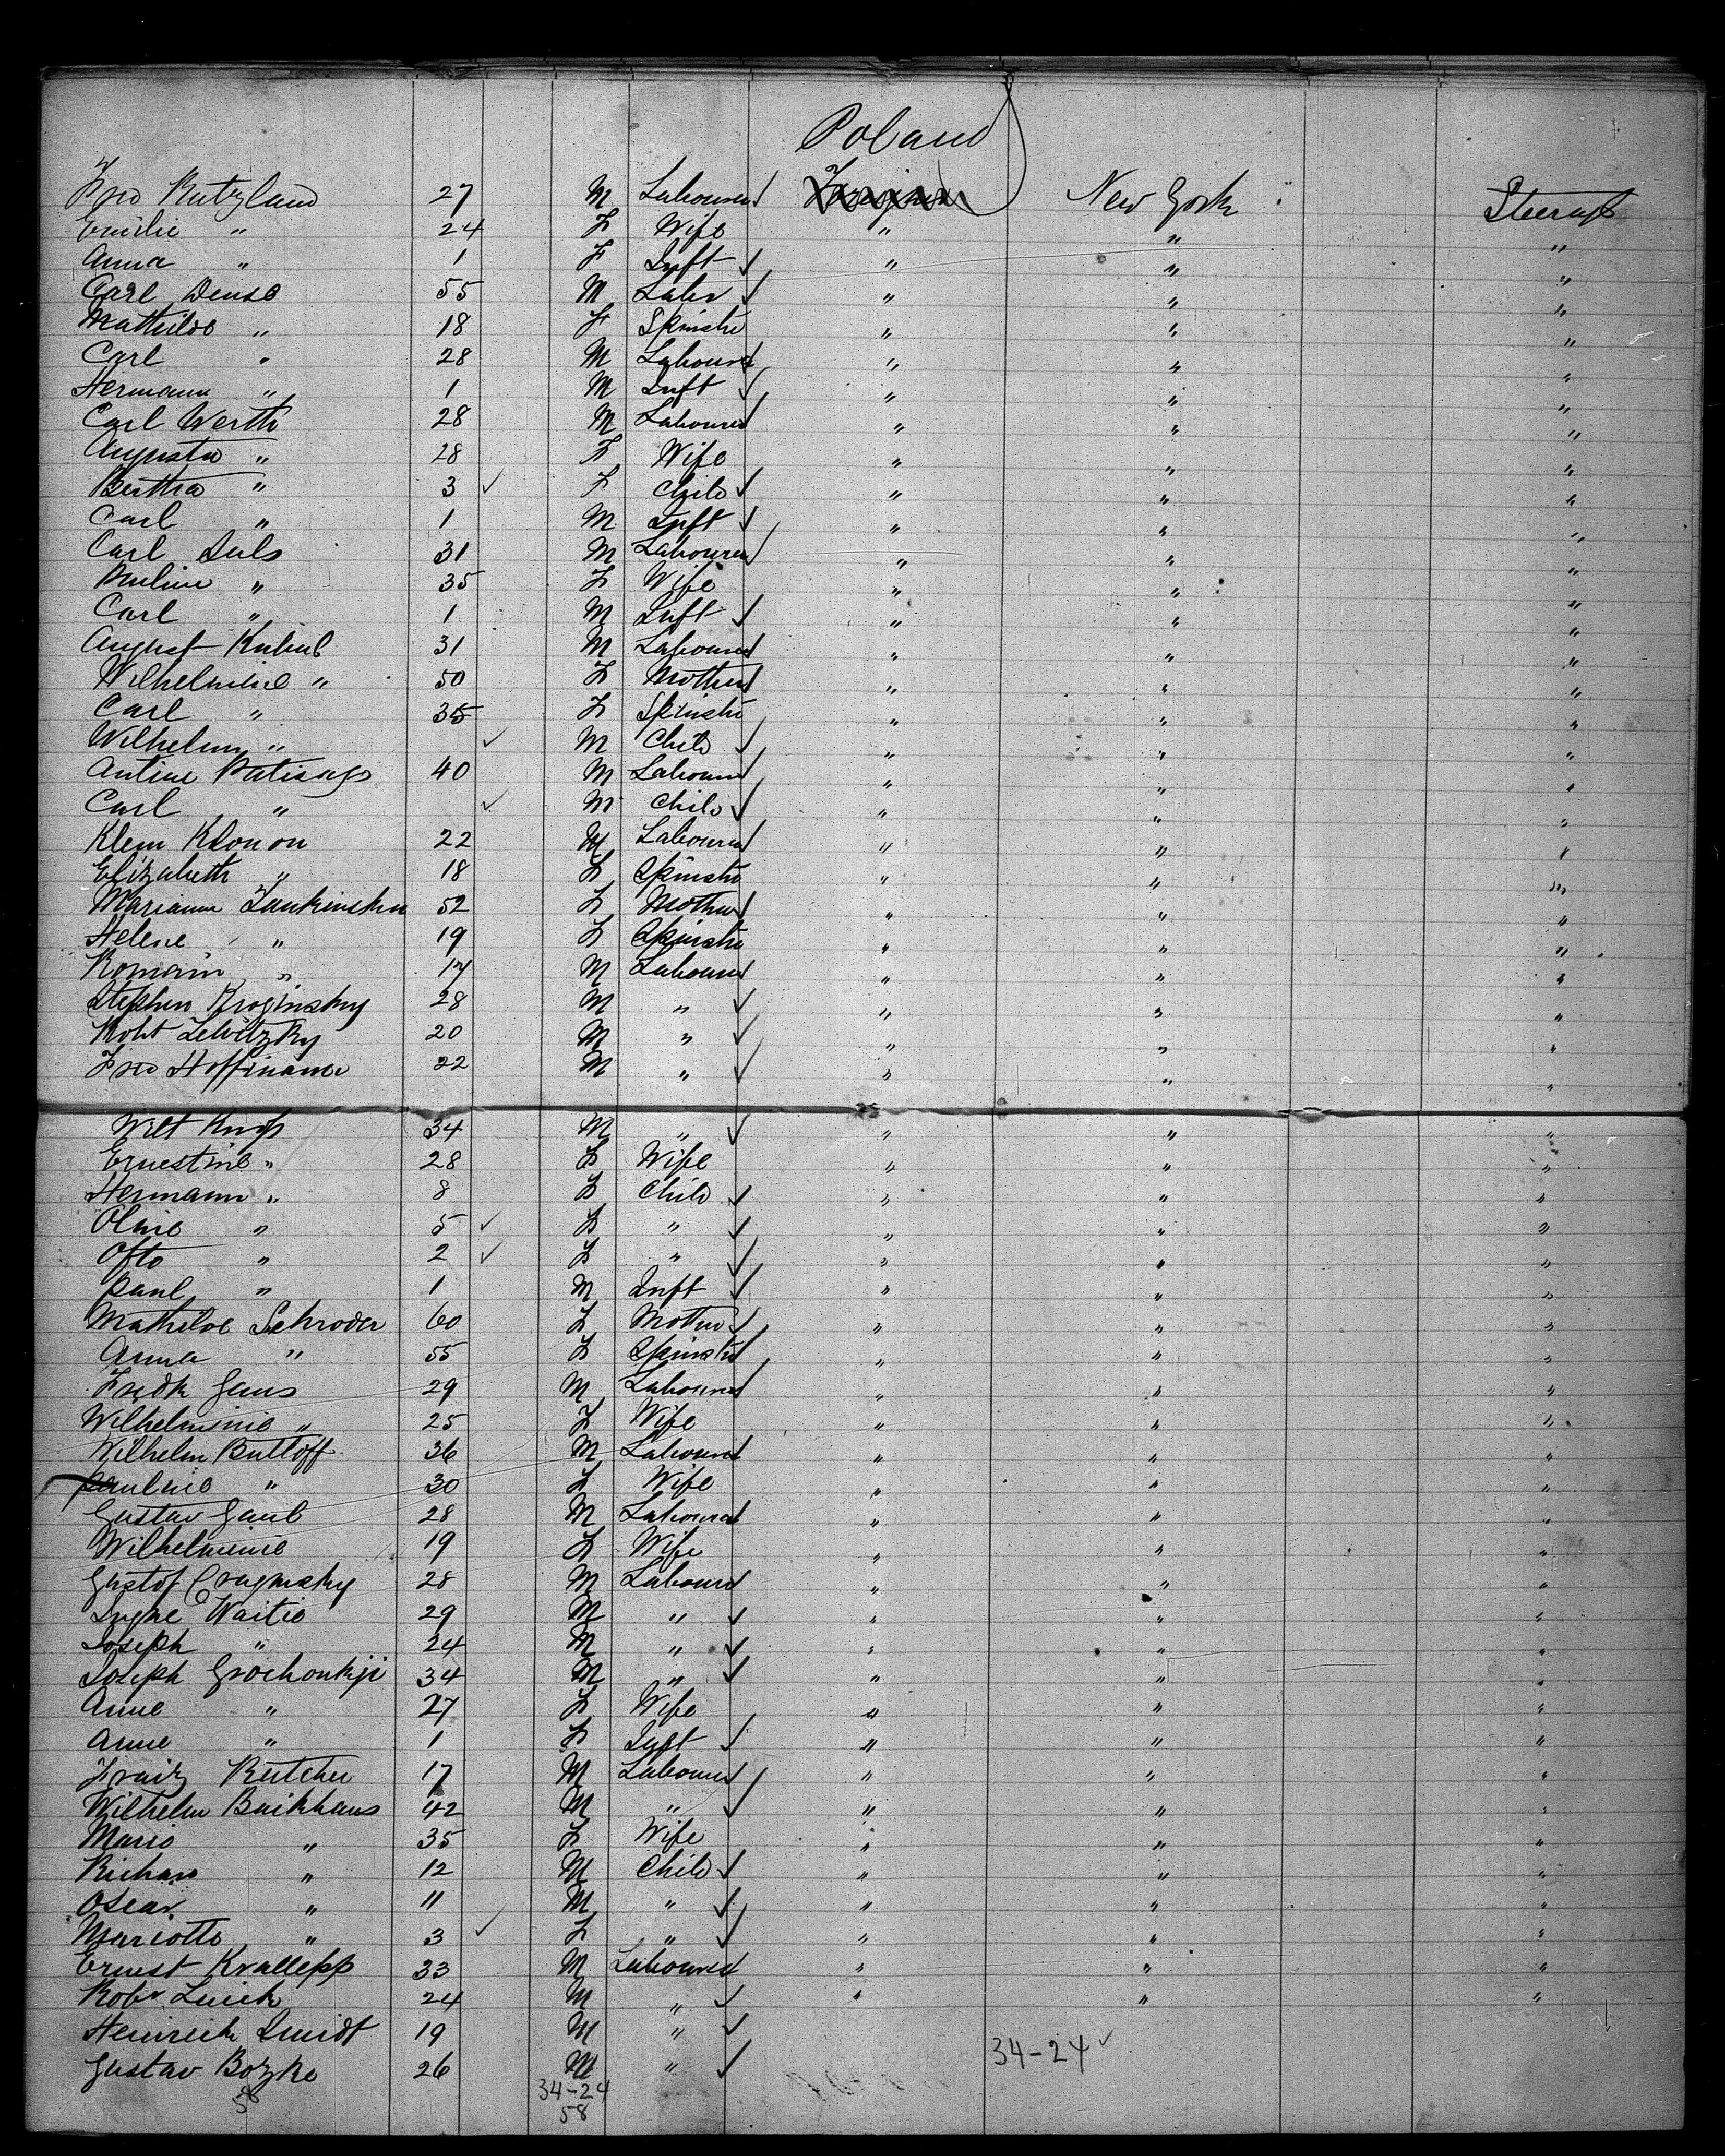 Poland
Fred Rutzland 27 M Labourer Foreigner New York Steerage
Emilie " 24 F Wife " " "
Anna " 1 F Inft " " "
Carl Dense 55 M Labr " " "
Mathilde " 18 F Spinstr " " "
Carl " 28 M Labourer " " "
Hermann " 1 M Inft " " "
Carl Werth 28 M Labourer " " "
Augusta " 28 F Wife " " "
Bertha " 3 F Child " " "
Carl " 1 M Inft " " "
Carl 31 M Labourer " " "
Pauline " 35 F Wife " " "
Carl " 1 M Inft " " "
August 31 M Labourer " " "
Wilhelmine " 50 F Mother " " "
Carl " 35 F Spinstr " " "
Wilhelm " M Child " " "
40 M Labourer " " "
Carl " M Child " " "
Klem Klonon 22 M Labourer " " "
Elizabeth " 18 F Spinstr " " "
Marianne 52 F Mother " " "
Helene " 19 F Spinstr " " "
Romain " 17 M Labourer " " "
Stephen Kroginsky 28 M " " " "
Robt Lewitzky 20 M " " " "
Fred Hoffmann 22 M " " " "
Wilt 34 M " " " "
Ernestine " 28 F Wife " " "
Hermann " 8 F Child " " "
" 5 F " " " "
Otto " 2 F " " " "
Paul " 1 M Inft " " "
Mathilde Schroder 60 F Mother " " "
Anna " 55 F Spinstr " " "
Fredk Gens 29 M Labourer " " "
Wilhelmine " 25 F Wife " " "
Wilhelm Buttoff 36 M Labourer " " "
Pauline " 30 F Wife " " "
Gustav Gaub 28 M Labourer " " "
Wilhelmine 19 F Wife " " "
Gustof 28 M Labourer " " "
Waitie 29 M " " " "
Joseph " 24 M " " " "
Joseph Grochonkji 34 M " " " "
Anne " 27 F Wife " " "
Anne " 1 F Inft " " "
Fraitz 17 M Labourer " " "
Wilhelm Backhaus 42 M " " " "
Marie " 35 F Wife " " "
Richard " 12 M Child " " "
Oscar " 11 M " " " "
Mariotte " 3 F " " " "
Ernest Krallepp 33 M Labourer " " "
Robr 24 M " " " "
Heinrich Smidt 19 M "
Gustav Bozke 26 M " 34-24
58 34-24
58